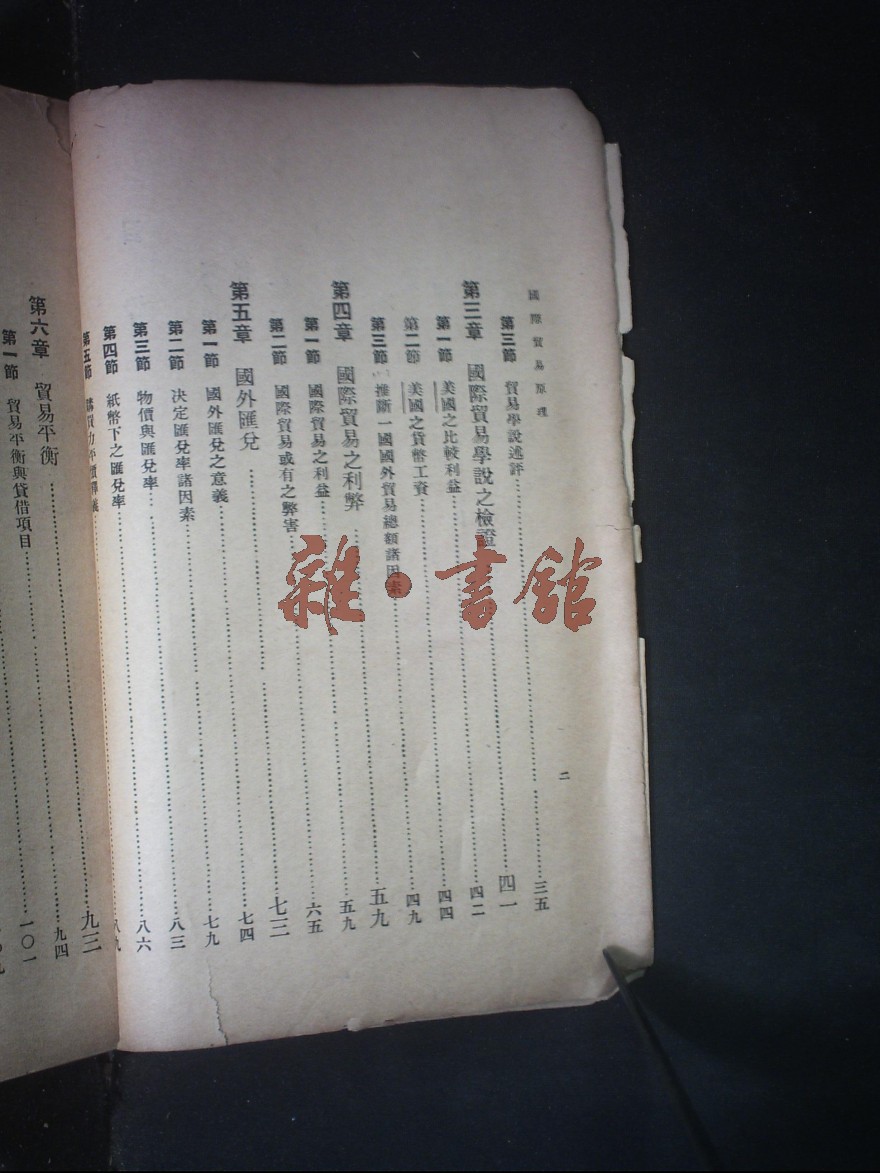 國際貿易原理 二
第三節 貿易學說述評 三五
第三章 國際貿易學說之檢證 四一
第一節 美國之比較利益 四二
第二節 美國之貨幣工資 四四
第三節 推斷一國國外貿易總額諸因素 四九
第四章 國際貿易之利弊 五九
第一節 國際貿易之利益 五九
第二節 國際貿易或有之弊害 六五
第五章 國外匯兌 七三
第一節 國外匯兌之意義 七四
第二節 決定匯兌率諸因素 七九
第三節 物價與匯兌率 八三
第四節 紙幣下之匯兌率 八六
第五節 購買力平價釋義 八九
第六章 貿易平衡 九三
第一節 貿易平衡與貸借項目 九四
一〇一
雜·書舘